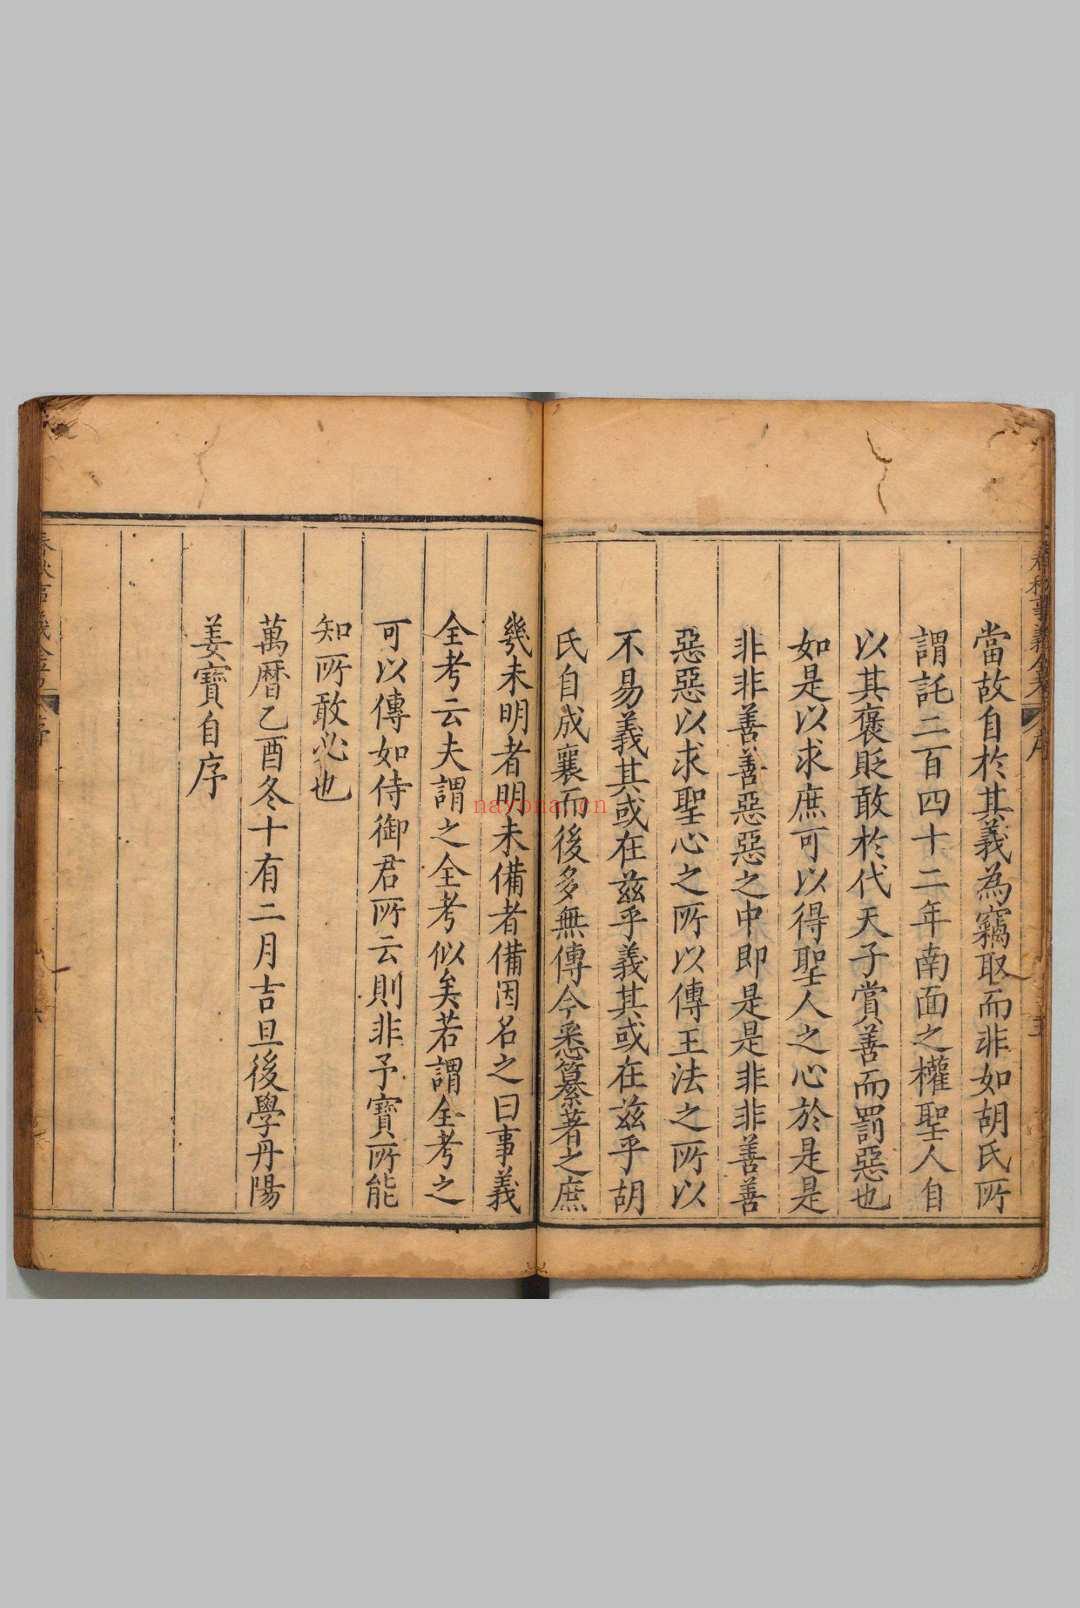 春秋事義全考 序
當故自於其義為竊取而非如胡氏所
謂託二百四十二年南面之權聖人自
以其褒貶敢於代天子賞善而罰惡也
如是以求庶可以得聖人之心於是是
非非善善惡惡之中即是是非非善善
惡惡以求聖心之所以傳王法之所以
不易義其或在兹乎義其或在兹乎胡
氏自成襄而後多無傳今悉纂著之庶
幾未明者明未備者備因名之曰事義
全考云夫謂之全考似矣若謂全考之
可以傳如侍御君所云則非予寶所能
知所敢必也
萬曆乙酉冬十有二月吉旦後學丹陽
姜寶自序
春秋事義全考 序
nayona.cn